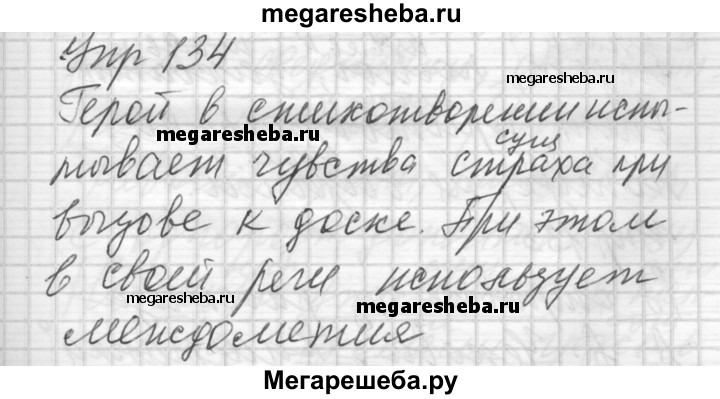 megaresheba.ru
Упр 134
megaresheba.ru
Герой в стихотворении испы-
megaresheba.ru
сущ
тывает чувства страха при
вызове к доске. При этом
в своей речи использует
megaresheba.ru
megaresheba.ru
междометия
Мегарешеба.ру